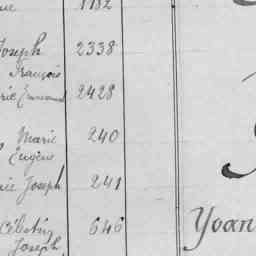 1182
Joseph 2338
François
Emmanuel 2428
Marie 240
Eugène
Joseph 241
Célestin 646
Joseph
Yvan